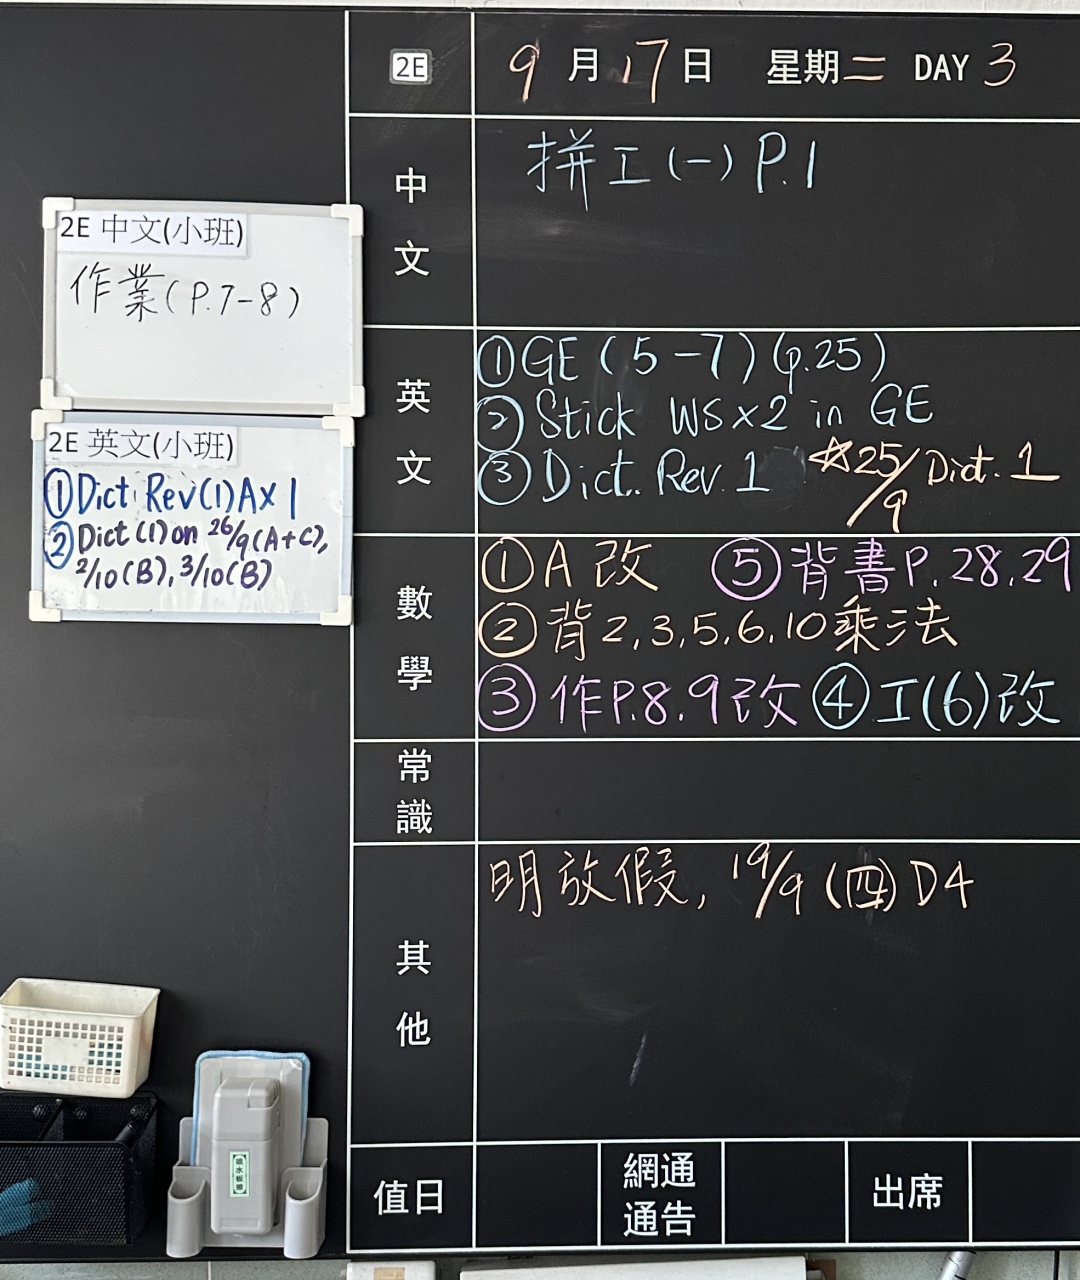 2E 9月17日 星期二 DAY 3
中文
拼工(一) P.1
2E 中文(小班)
作業(P.7-8)
英文
①GE (5-7) (p.25)
②Stick WS×2 in GE
③Dict. Rev. 1 ☆25/9 Dict. 1
2E 英文(小班)
①Dict Rev(1)A×1
②Dict (1) on 26/9(A+C),
2/10(B), 3/10(B)
數學
①A改 ⑤背書P.28.29
②背2,3,5,6,10乘法
③作P.8.9改 ④工(6)改
常識
其他
明放假, 19/9 (四) D4
值日 網通通告 出席
吸水板擦